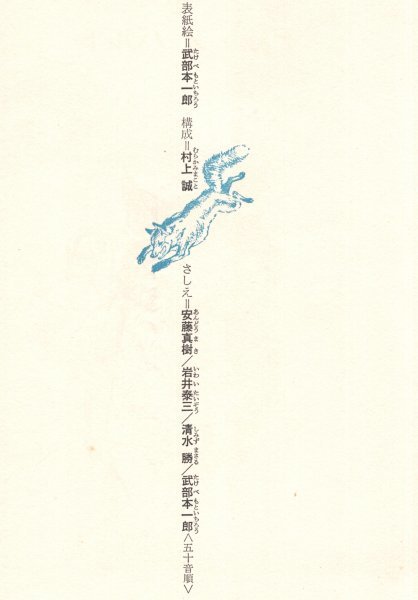 表紙絵＝武部本一郎 構成＝村上 誠
たけべ もといちろう むらかみまこと
さしえ＝安藤真樹／岩井泰三／清水 勝／武部本一郎〈五十音順〉
あんどう まき いわい たいぞう しみず まさる たけべ もといちろう